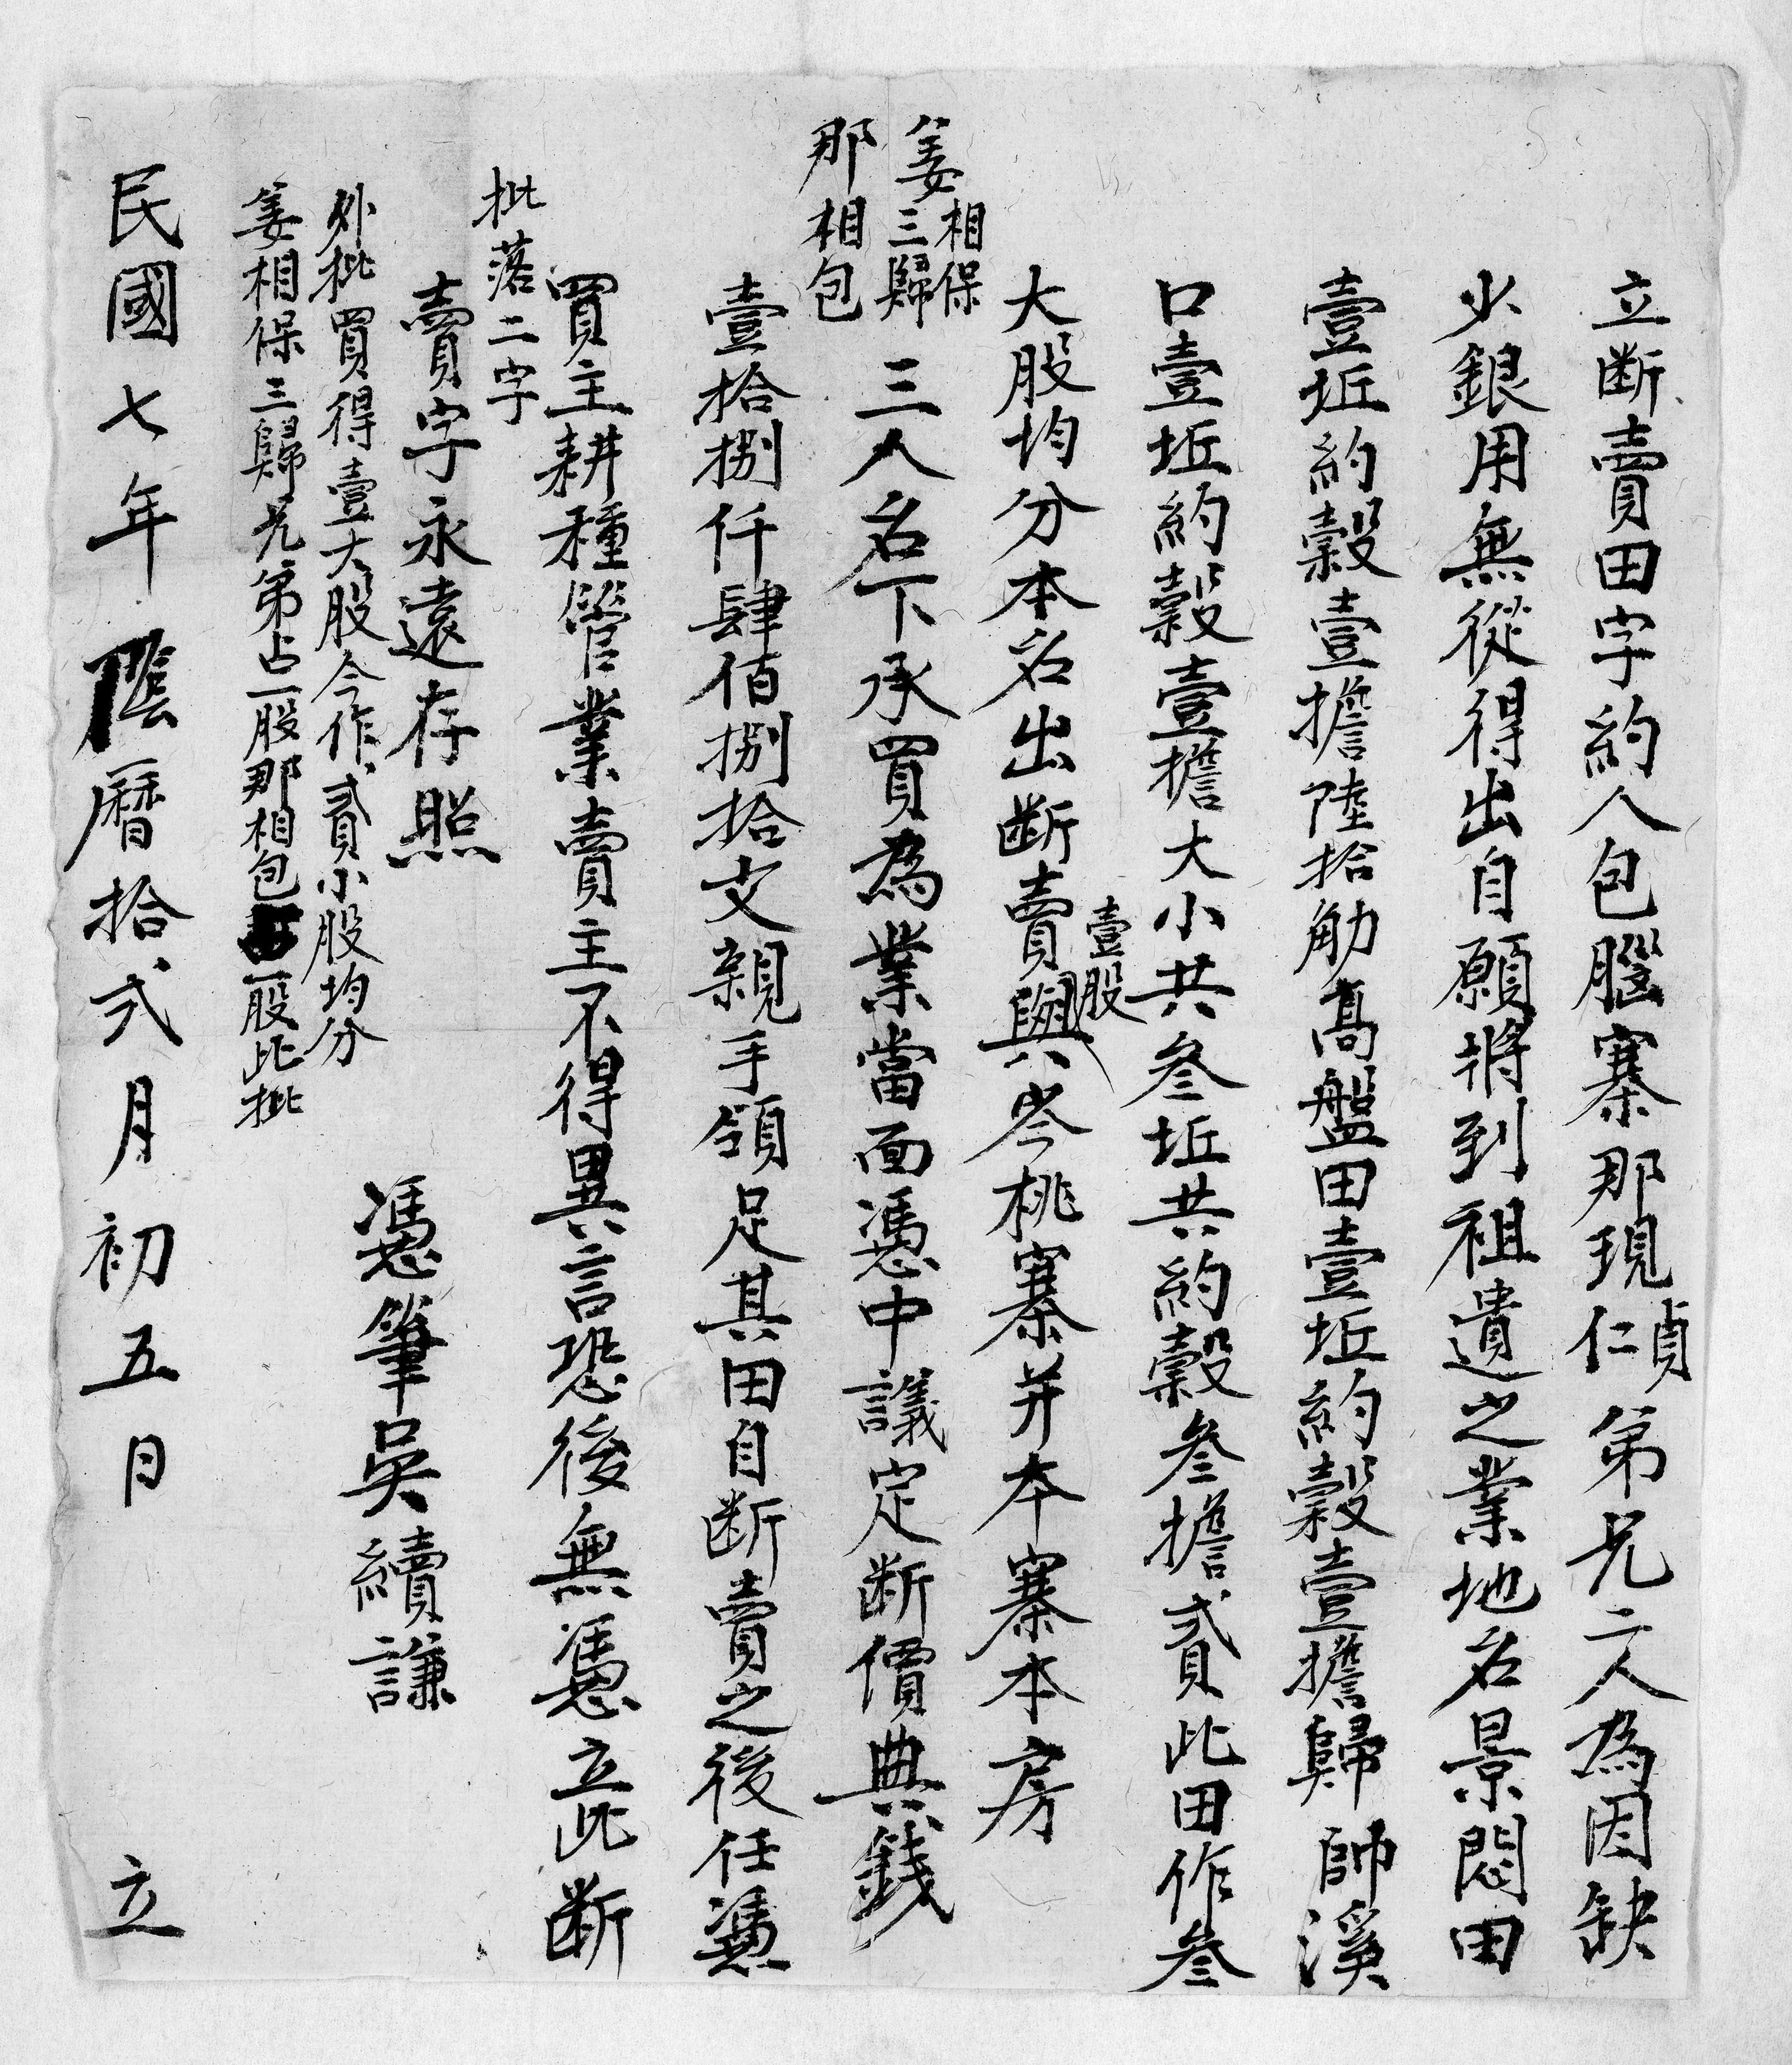 立断賣田字約人包腦寨那現仁貞弟兄二人為因缺
少銀用無從得出自願將到祖遺之業地名景悶田
壹坵約穀壹擔陸拾觔髙盤田壹坵約穀壹擔歸帥溪
口壹坵約穀壹擔大小共叁坵共約穀叁擔貳此田作叁
大股均分本名出断賣壹股與岑桃寨并本寨本房
姜相保三歸
那相包
三人名下承買為業當面憑中議定断價典錢
壹拾捌仟肆佰捌拾文親手領足其田自断賣之後任憑
買主耕種管業賣主不得異言恐後無憑立此断
批落二字
賣字永遠存照
憑筆吳續謙
外批買得壹大股今作貳小股均分
姜相保三歸兄弟占一股那相包一股此批
民國七年陰曆拾弍月初五日 立